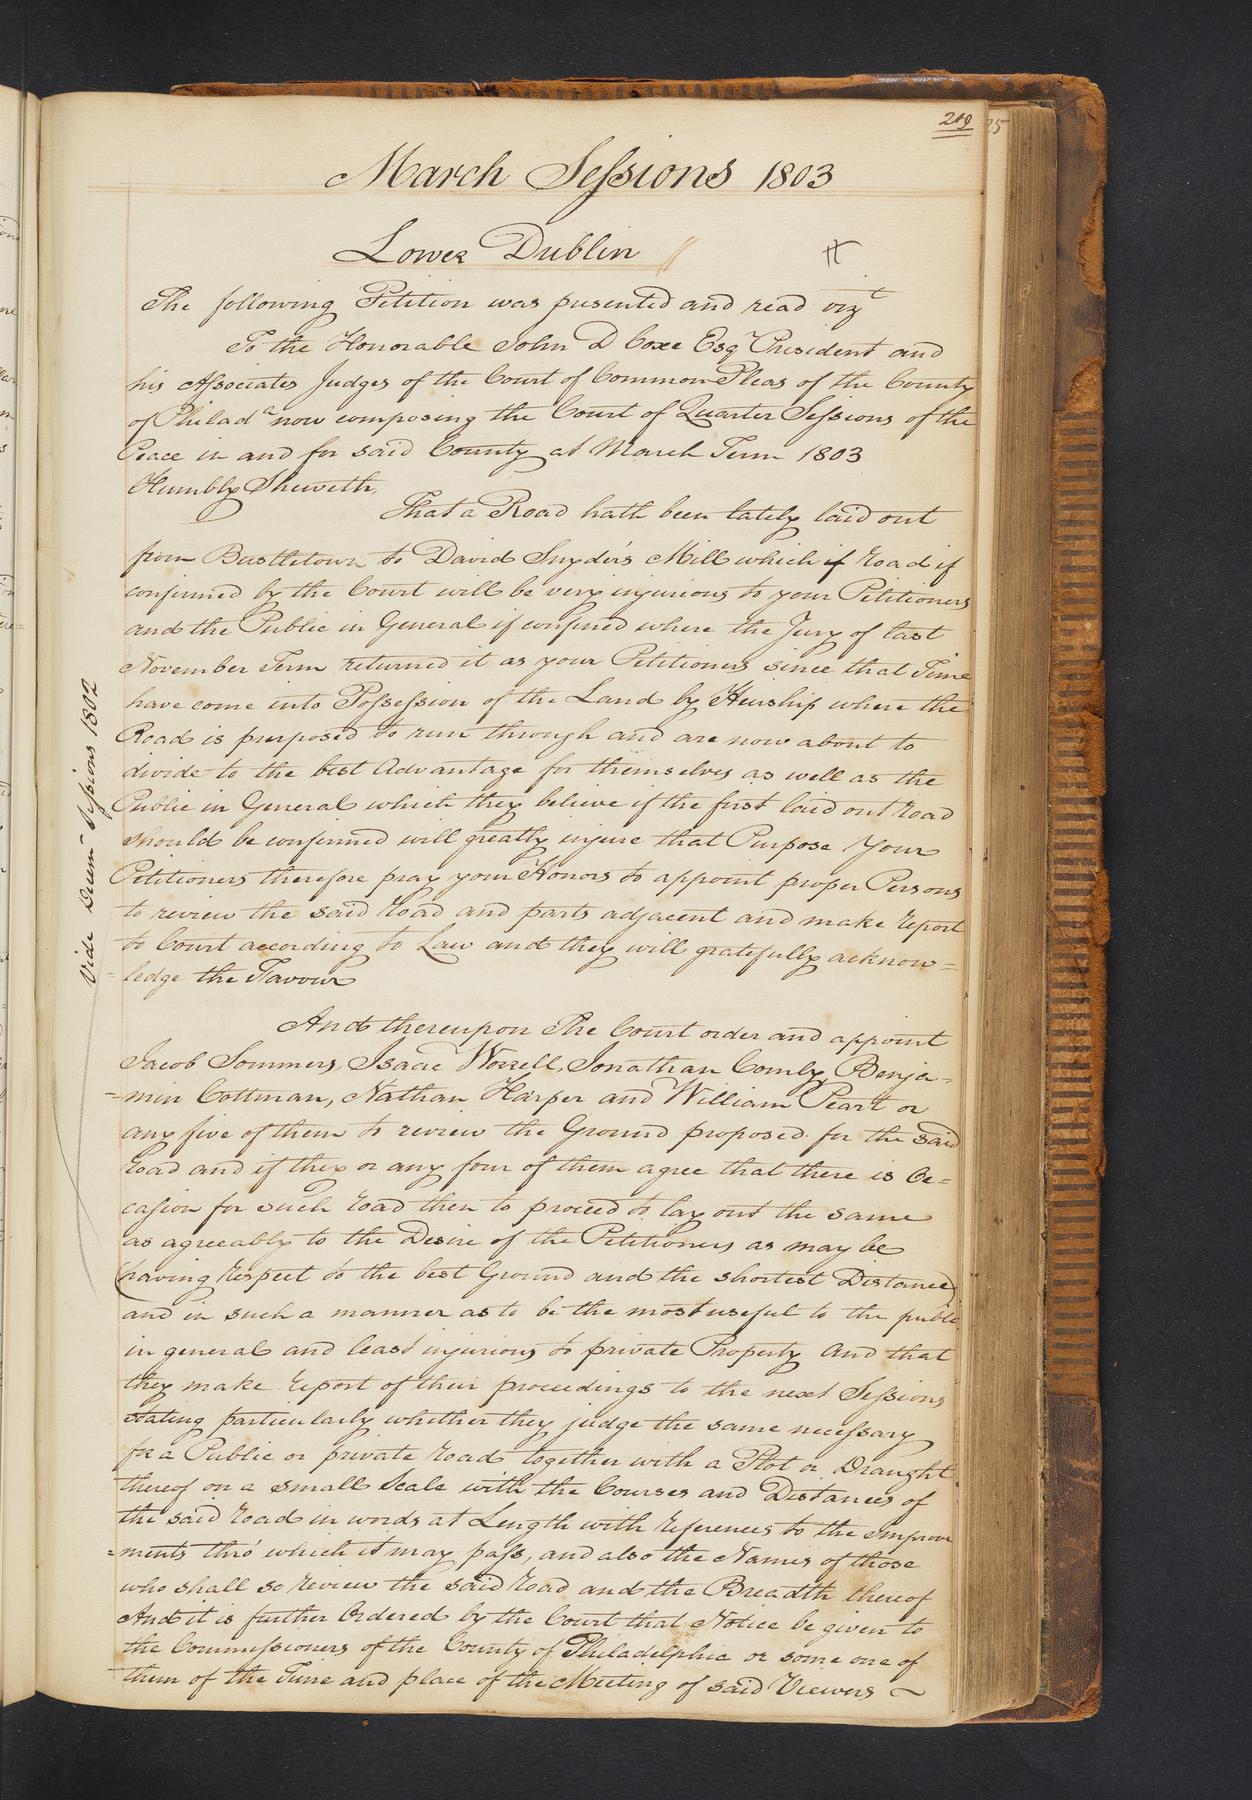 219
March Sessions 1803
Lower Dublin
The following Petition was presented and read vizt
To the Honorable John D Coxe Esqr President and
his Associates Judges of the Court of Common Pleas of the County
of Philada now composing the Court of Quarter Sessions of the
Peace in and for said County at March Term 1803
Humbly Sheweth,
That a Road hath been lately laid out
from Bustletown to David Snyder's Mill which if road if
confirmed by the Court will be very injurious to your Petitioners
and the Public in General if confined where the Jury of last
November Term returned it as your Petitioners since that Time
have come into Possession of the Land by Heirship where the
Road is purposed to run through and are now about to
divide to the best Advantage for themselves as well as the
Public in General which they believe if the first laid out road
should be confirmed will greatly injure that Purpose Your
Petitioners therefore pray your Honors to appoint proper Persons
to review the said road and parts adjacent and make report
to Court according to Law and they will gratefully acknow=
ledge the Favour
Vide Decem Sessions 1802
And thereupon The Court order and appoint
Jacob Sommers, Isaac Worrell, Jonathan Comly Benja=
=min Cottman, Nathan Harper and William Peart or
any five of them to review the Ground proposed for the said
road and if they or any four of them agree that there is Oc=
casion for such road then to proceed to lay out the same
as agreeably to the Desire of the Petitioners as may be
(having respect to the best Ground and the shortest Distance)
and in such a manner as to be the most useful to the public
in general and least injurious to private Property And that
they make report of their proceedings to the next Sessions
stating particularly whether they judge the same necessary
for a Public or private road together with a Plot or Draught
thereof on a small Scale with the Courses and Distances of
the said road in words at Length with references to the improve
=ments thro' which it may pass, and also the Names of those
who shall so review the said road and the Breadth thereof
And it is further Ordered by the Court that Notice be given to
the Commissioners of the County of Philadelphia or some one of
them of the Time and place of the Meeting of said Viewers ~